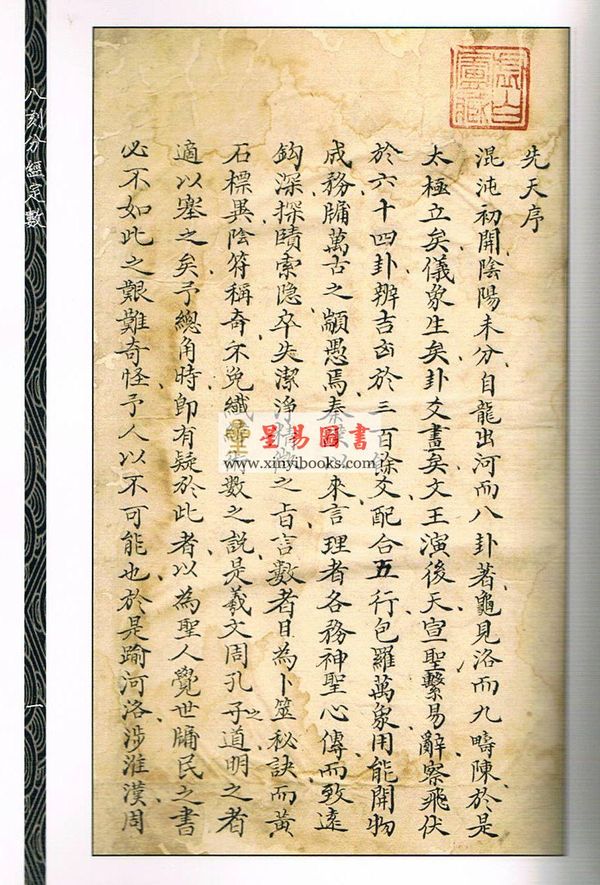 先天序
混沌初開陰陽未分自龍出河而八卦著龜見洛而九疇陳於是
太極立矣儀象生矣卦爻畫矣文王演後天宣聖繫易辭察飛伏
於六十四卦辨吉凶於三百餘爻配合五行包羅萬象用能開物
成務牖萬古之顓愚焉秦漢以來言理者各務神聖心傳而致遠
鈎深探賾索隐卒失潔淨精微之旨言數者目為卜筮秘訣而黃
石標異陰符稱奇不免纖緯術數之說是羲文周孔子道明之者
之
適以塞之矣予總角時即有疑於此者以為聖人覺世牖民之書
必不如此之艱難奇怪予人以不可能也於是踰河洛涉淮漢周
八刻分經定數
一
星易圖書
www.xinyibooks.com